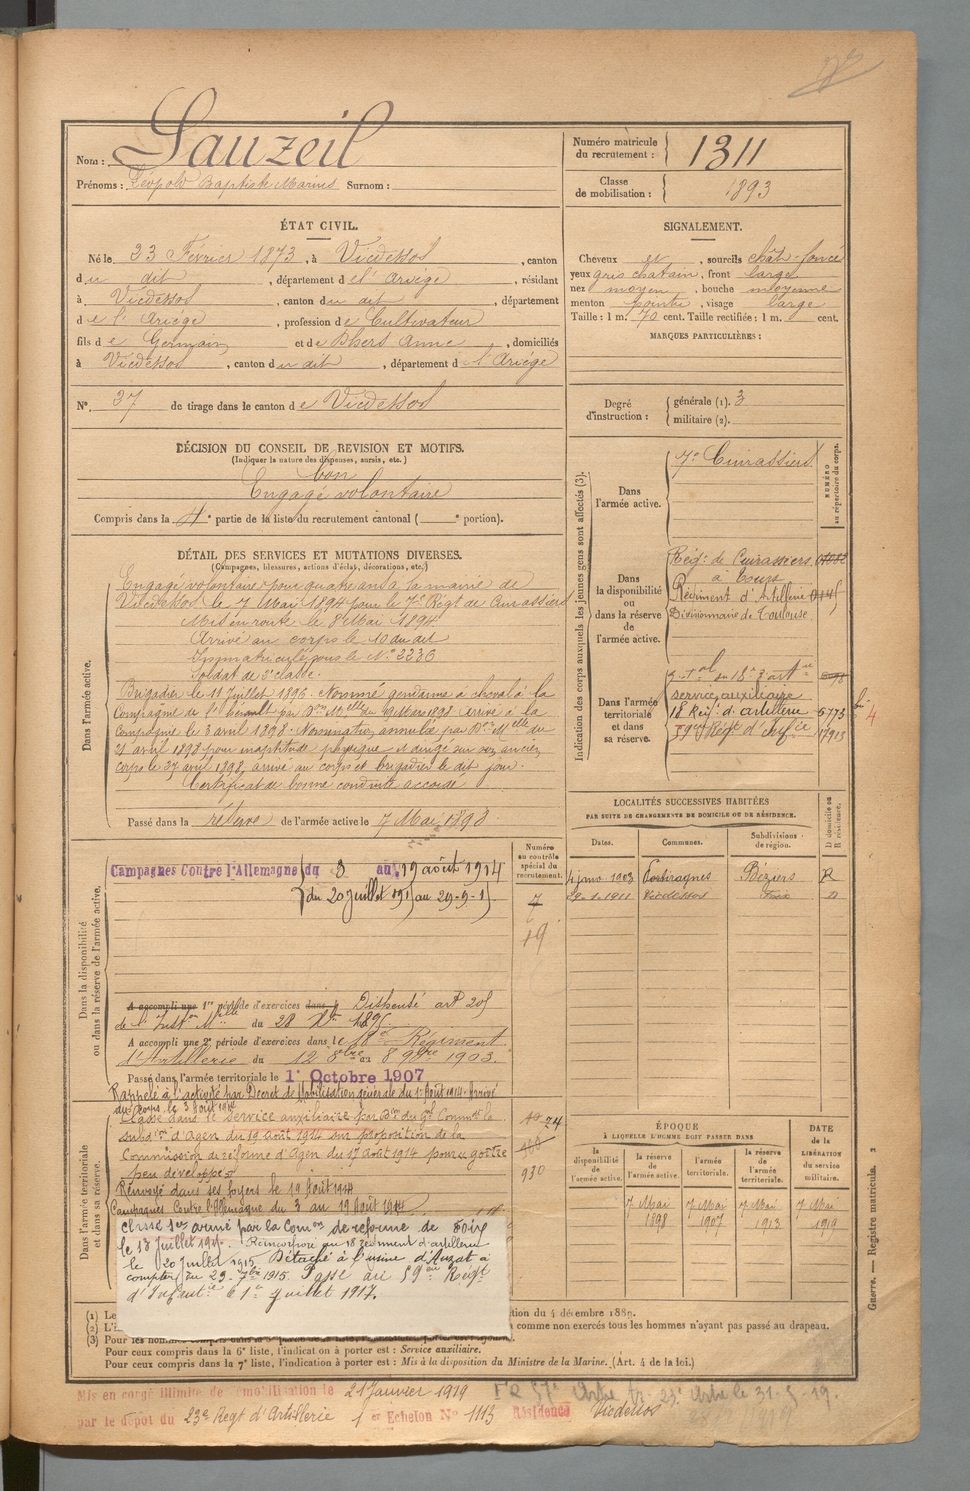 Nom : Lauzeil
Prénoms : Léopold Baptiste Marius Surnom :
Numéro matricule du recrutement : 1311
Classe de mobilisation : 1893
ÉTAT CIVIL.
Né le 23 Février 1873, à Vicdessos, canton
du dit, département de l'Ariège, résidant
à Vicdessos, canton du dit, département
de l'Ariège, profession de Cultivateur
fils de Germain et de Anne, domiciliés
à Vicdessos, canton du dit, département de l'Ariège
N° 37 de tirage dans le canton de Vicdessos
SIGNALEMENT.
Cheveux et, sourcils chât-foncé
yeux gris chatain, front large
nez moyen, bouche moyenne
menton pointu, visage large
Taille : 1 m. 70 cent. Taille rectifiée : 1 m. cent.
MARQUES PARTICULIÈRES :
DÉCISION DU CONSEIL DE REVISION ET MOTIFS.
(Indiquer la nature des dispenses, sursis, etc.)
bon
Engagé volontaire
Compris dans la 4e partie de la liste du recrutement cantonal ( e portion).
Degré d'instruction : générale (1). 3
militaire (2).
DÉTAIL DES SERVICES ET MUTATIONS DIVERSES.
(Campagnes, blessures, actions d'éclat, décorations, etc.)
Dans l'armée active.
Engagé volontaire pour quatre ans à la mairie de
Vicdessos le 7 Mai 1894 pour le 7e Régt de Cuirassiers
Mis en route le 8 Mai 1894
Arrivé au corps le 10 du dit
Immatriculé sous le N° 2236
Soldat de 2e classe.
Brigadier le 11 Juillet 1896. Nommé gendarme à cheval à la
Compagnie de l'Hérault par Don Mlle du 19 Mars 1898 Arrivé à la
Compagnie le 3 avril 1898. Nomination annulée par Don Mlle du
21 avril 1898 pour inaptitude physique et dirigé sur son ancien
corps le 27 avril 1898, arrivé au corps et brigadier le dit jour.
Certificat de bonne conduite accordé
Passé dans la réserve de l'armée active le 7 Mai 1898
Indication des corps auxquels les jeunes gens sont affectés (3).
NUMÉRO au répertoire du corps.
Dans l'armée active.
7e Cuirassiers
Dans la disponibilité ou dans la réserve de l'armée active.
Régt de Cuirassiers
à Tours
Régiment d'Artillerie
Divisionnaire de Toulouse
Dans l'armée territoriale et dans sa réserve.
service auxiliaire
18 Régt d'artillerie 5773
59e Régt d'Infie 17913
4
LOCALITÉS SUCCESSIVES HABITÉES
PAR SUITE DE CHANGEMENTS DE DOMICILE OU DE RÉSIDENCE.
Dates. Communes. Subdivisions de région. D domicile ou R résidence.
4 janv 1903 Portiragnes Béziers R
1911 Vicdessos Foix D
Dans la disponibilité ou dans la réserve de l'armée active.
Numéro au contrôle spécial du recrutement.
Campagnes Contre l'Allemagne du 3 au 19 août 1914
du 20 juillet 1915 au
7
19
A accompli une 1re période d'exercices dans l Dispensé art 205
de l'Inston Mlle du 28 Xbre 1895
A accompli une 2e période d'exercices dans le 18e Régiment
d'Artillerie du 12 8bre au 8 9bre 1903.
Passé dans l'armée territoriale le 1er Octobre 1907
Rappelé à l'activité par Décret de Mobilisation générale du 1er Août 1914. Arrivé
au corps le 3 août 1914
Dans l'armée territoriale et dans sa réserve.
Classé dans le service auxiliaire par Don du Gl Commt la
subdon d'Agen du 19 août 1914 sur proposition de la
Commission de réforme d'Agen du 17 Août 1914 pour goître
peu développé
Renvoyé dans ses foyers le 19 Août 1914
Campagnes Contre l'Allemagne du 3 au 19 Août 1914
24
930
Classé Ser armé par la Comon de réforme de Foix
le 13 Juillet 1915. Réincorporé au 18 régiment d'artillerie
le 20 juillet 1915 Détaché à l'usine d'Auzat à
compter du 29-7bre 1915. Passé au 59e Régt
d'Infanterie le 1er juillet 1917.
ÉPOQUE
À LAQUELLE L'HOMME DOIT PASSER DANS
la disponibilité de l'armée active. la réserve de l'armée active. l'armée territoriale. la réserve de l'armée territoriale. DATE de la LIBÉRATION du service militaire.
7 Mai 1898 7 Mai 1907 7 Mai 1913 7 Mai 1919
(1) Le
tion du 4 décembre 1889.
(2) L'i
comme non exercés tous les hommes n'ayant pas passé au drapeau.
(3) Pour les hommes
Pour ceux compris dans la 6e liste, l'indication à porter est : Service auxiliaire.
Pour ceux compris dans la 7e liste, l'indication à porter est : Mis à la disposition du Ministre de la Marine. (Art. 4 de la loi.)
Guerre. — Registre matricule. 2
Mis en congé illimité de démobilisation le 21 Janvier 1919
par le dépôt du 23e Régt d'Artillerie 1er Echelon N° 1113 Résidence Vicdessos